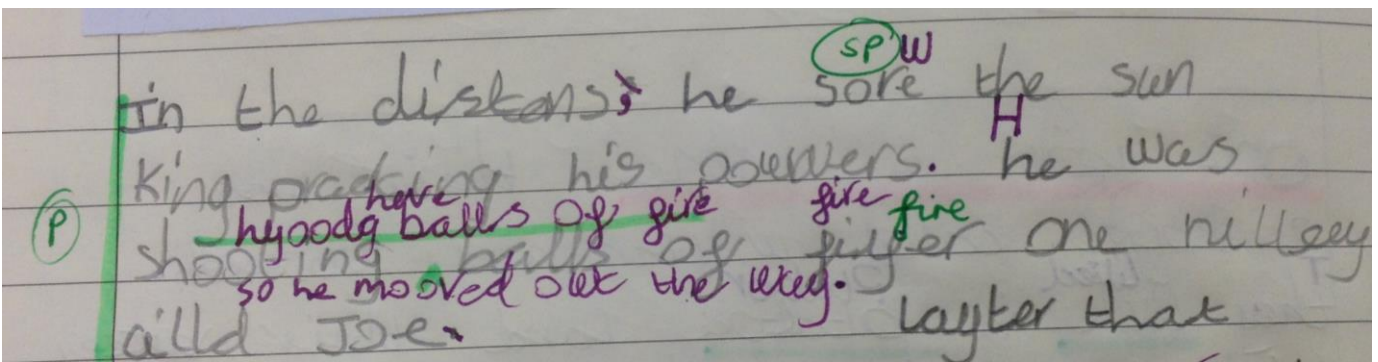 SP W
In the distans, he sore the sun
H
King pracking his pouwers. he was
have
hyoodg balls of fire fire fire
P
shooting balls of fiyer one nilleey
so he mooved out the way.
cilld Joe. Layter that